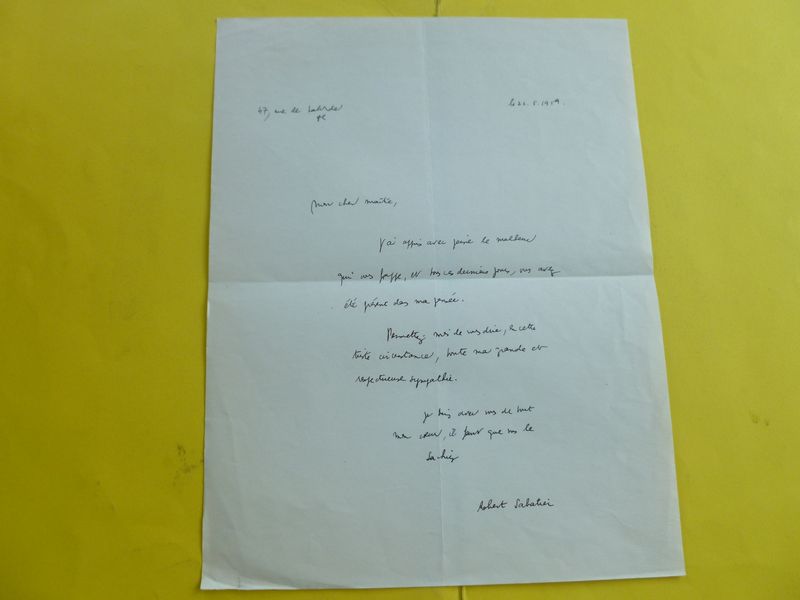 47, rue de
le 21. 5. 1959.
Mon cher maître,
J'ai appris avec peine le malheur
qui vous frappe, et tous ces derniers jours, vous avez
été présent dans ma pensée.
Permettez-moi de vous dire, en cette
triste circonstance, toute ma grande et
respectueuse sympathie.
Je suis avec vous de tout
mon cœur, il faut que vous le
sachiez
Robert Sabatier